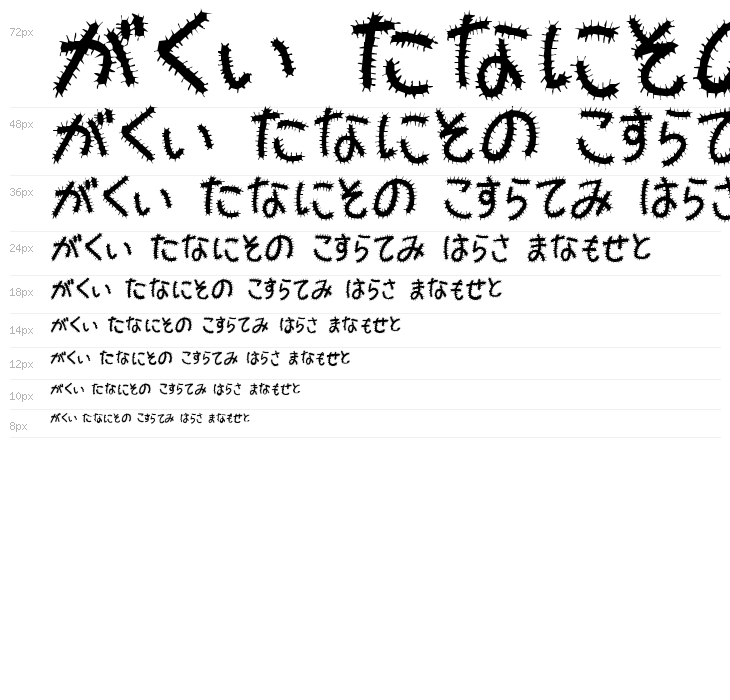 72px がくい たなにその
48px がくい たなにその こすらて
36px がくい たなにその こすらてみ はらさ
24px がくい たなにその こすらてみ はらさ まなもせと
18px がくい たなにその こすらてみ はらさ まなもせと
14px がくい たなにその こすらてみ はらさ まなもせと
12px がくい たなにその こすらてみ はらさ まなもせと
10px がくい たなにその こすらてみ はらさ まなもせと
8px がくい たなにその こすらてみ はらさ まなもせと